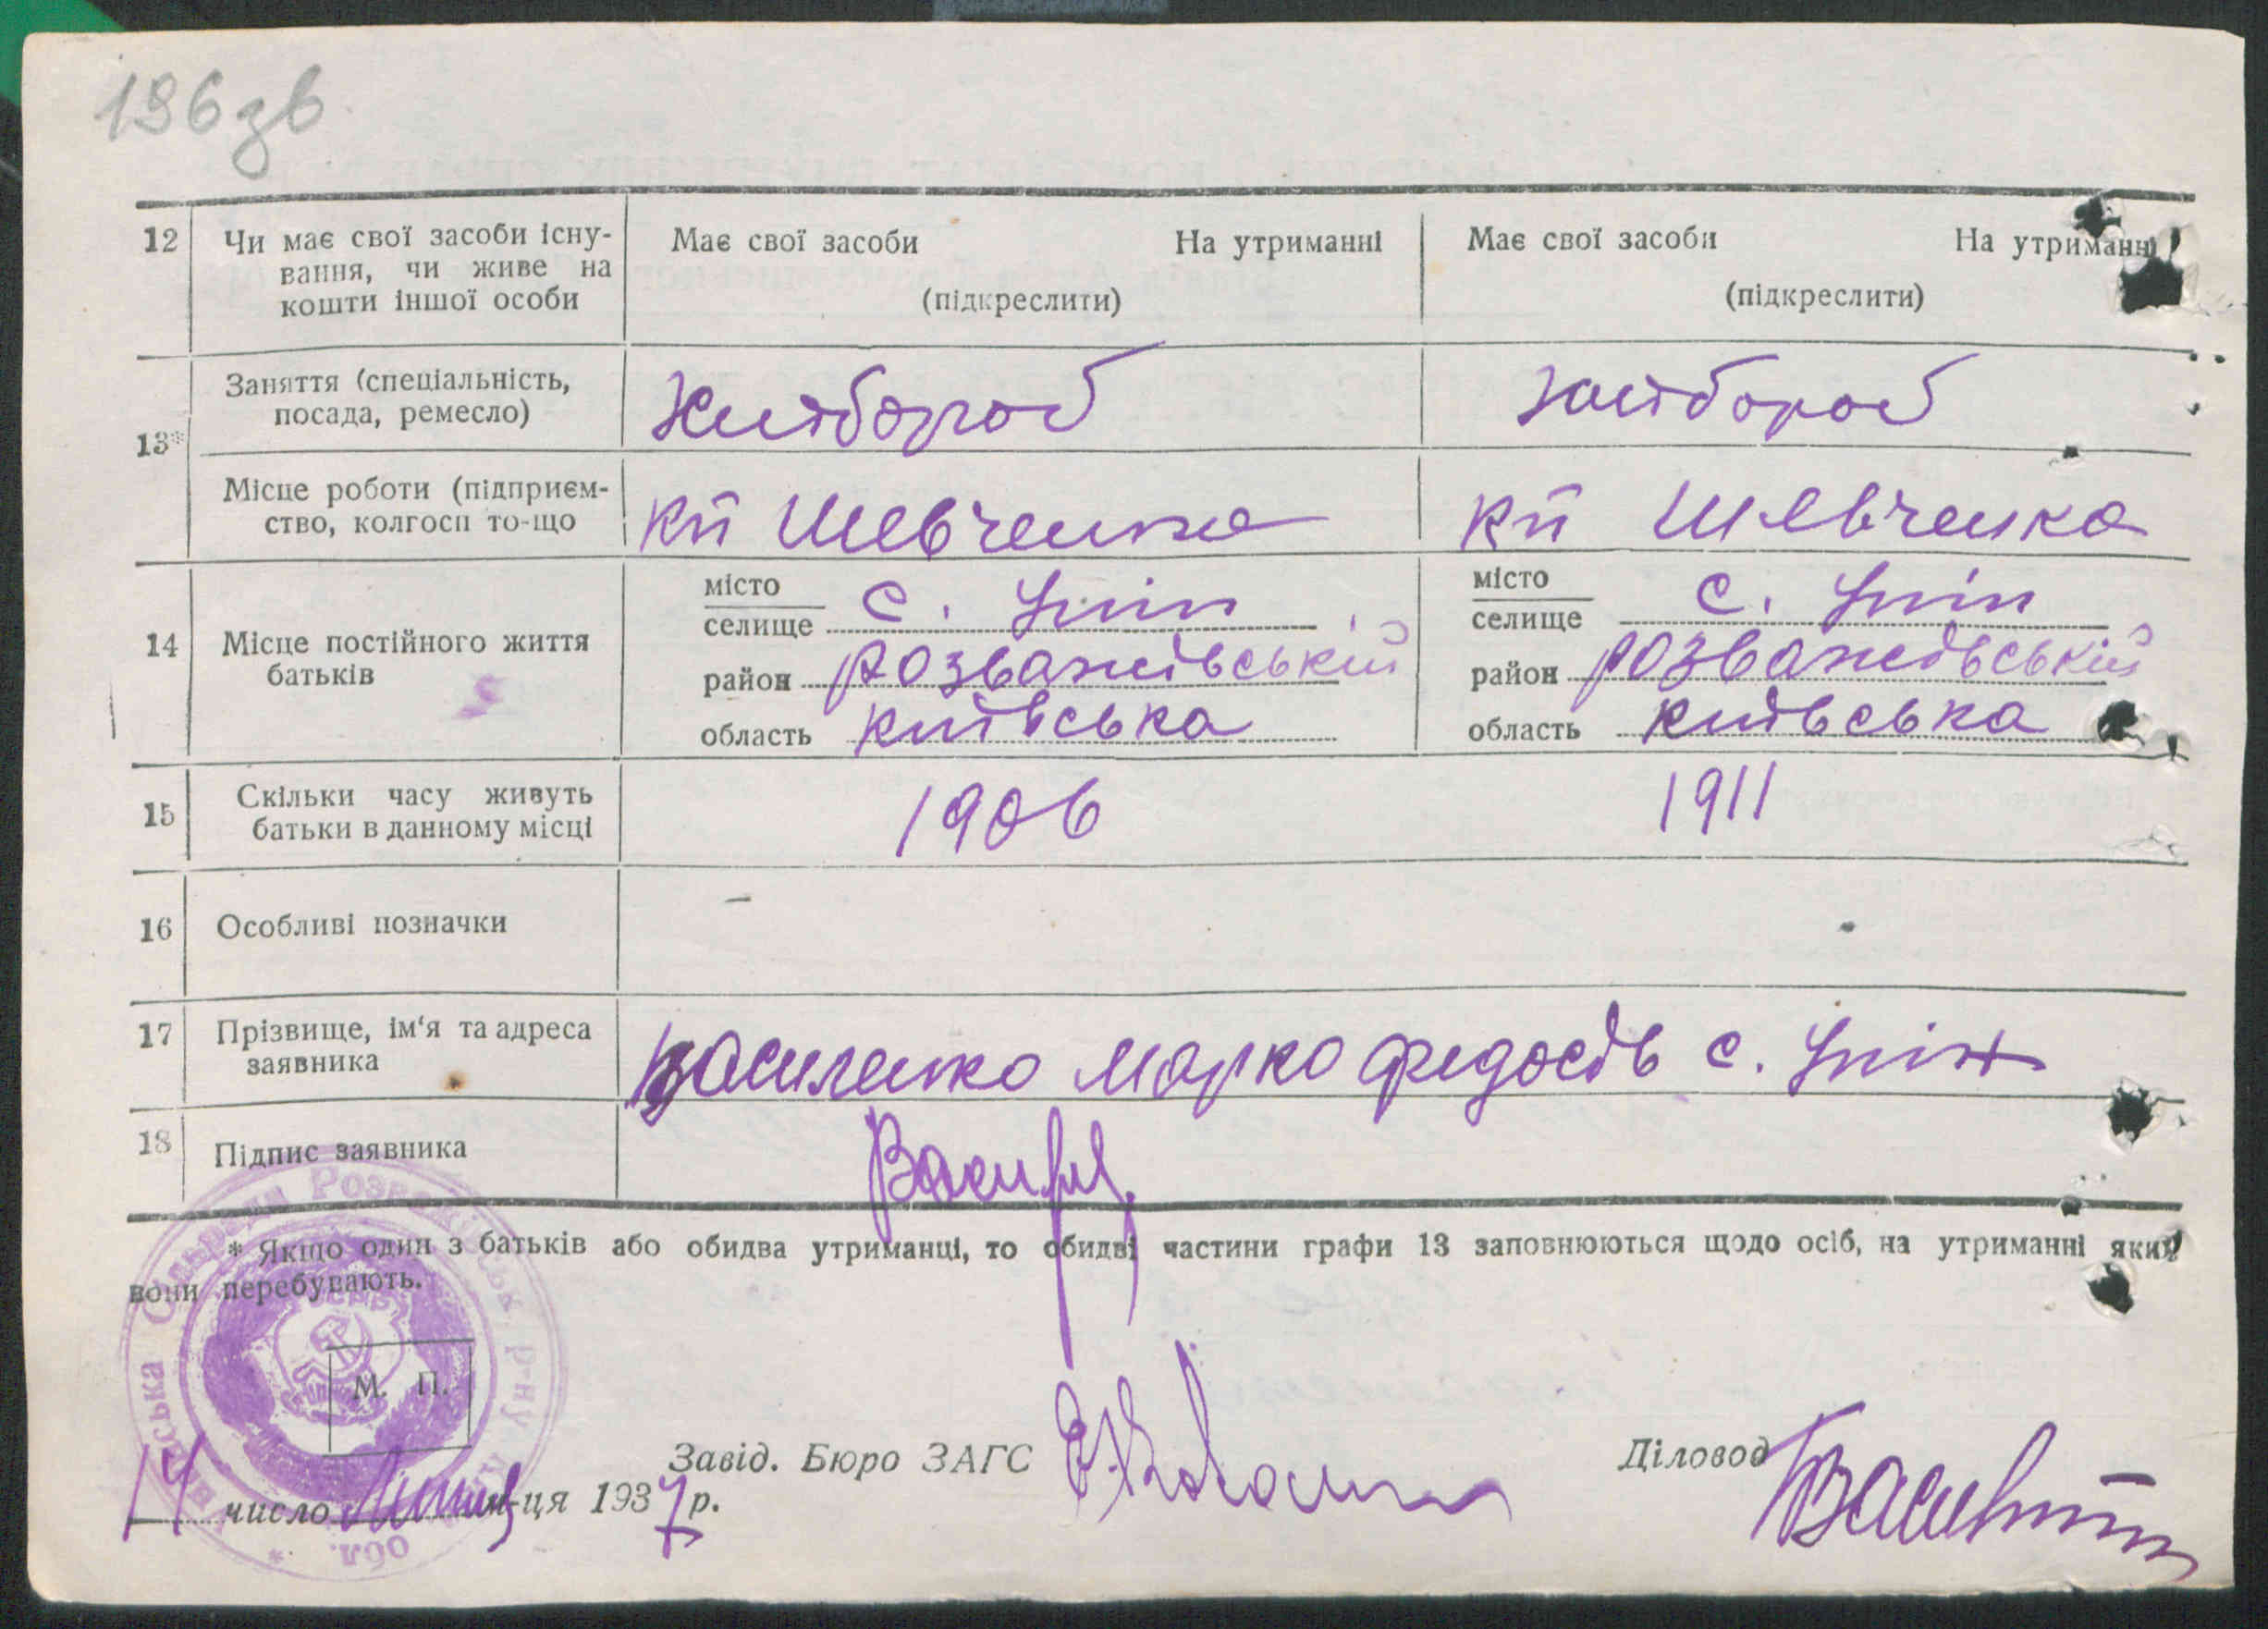 196 зв
12 Чи має свої засоби існу- Має свої засоби На утриманні Має свої засоби На утриманні
вання, чи живе на
кошти іншої особи (підкреслити) (підкреслити)
13* Заняття (спеціальність,
посада, ремесло) Хлібороб Хлібороб
Місце роботи (підприєм-
ство, колгосп то-що кп Шевченка кп Шевченка
14 Місце постійного життя
батьків
місто
селище с. місто
селище с.
район Розважівський район Розважівський
область Київська область Київська
15 Скільки часу живуть
батьки в данному місці 1906 1911
16 Особливі позначки –
17 Прізвище, ім'я та адреса
заявника Василенко Марко Федосів с.
18 Підпис заявника
* Якщо один з батьків або обидва утриманці, то обидві частини графи 13 заповнюються щодо осіб, на утриманні яких
вони перебувають.
М. П.
Завід. Бюро ЗАГС Діловод
14 число м-ця 1937 р.